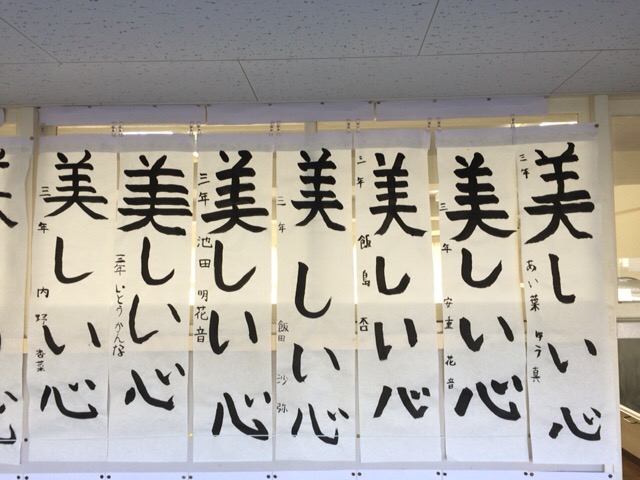 美しい心
三年 あい葉 ゆう真
美しい心
三年 安重 花音
美しい心
三年 飯島 杏
美しい心
三年 飯田 沙弥
美しい心
三年 池田 明花音
美しい心
三年 いとう かんな
美しい心
三年 内野 杏菜